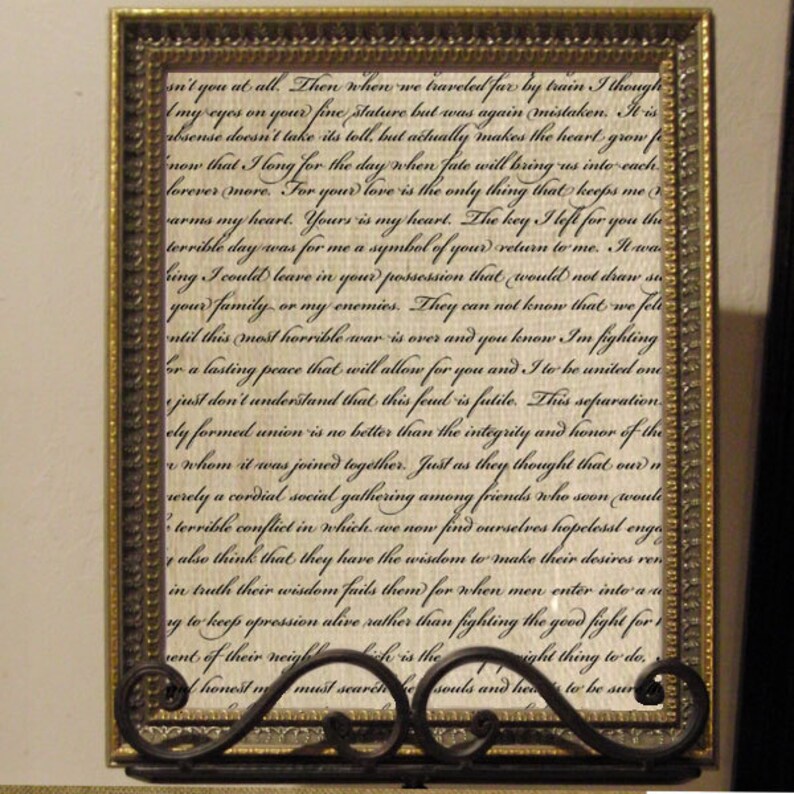 sn't you at all. Then when we traveled far by train I though
d my eyes on your fine stature but was again mistaken. It is
absense doesn't take its toll, but actually makes the heart grow f
now that I long for the day when fate will bring us into each
forever more. For your love is the only thing that keeps me
arms my heart. Yours is my heart. The key I left for you th
terrible day was for me a symbol of your return to me. It wa
hing I could leave in your possession that would not draw su
your family or my enemies. They can not know that we felt
until this most horrible war is over and you know I'm fighting
for a lasting peace that will allow for you and I to be united on
just don't understand that this feud is futile. This separation
ely formed union is no better than the integrity and honor of th
whom it was joined together. Just as they thought that our m
merely a cordial social gathering among friends who soon would
terrible conflict in which we now find ourselves hopelessl enga
also think that they have the wisdom to make their desires ren
in truth their wisdom fails them for when men enter into a
ng to keep opression alive rather than fighting the good fight for
ent of their which is the right thing to do.
honest must search souls and to be sure